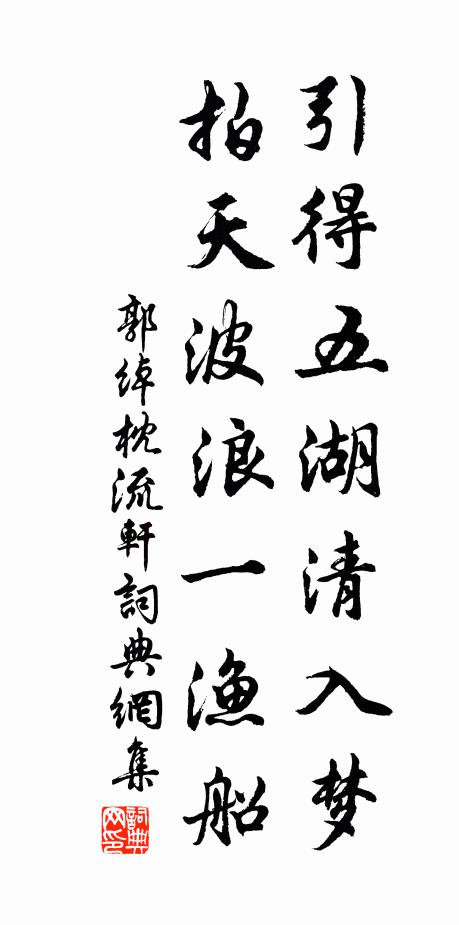 引得五湖清入梦
拍天波浪一渔船
郭綽枕流軒詞典網集
詞典網印